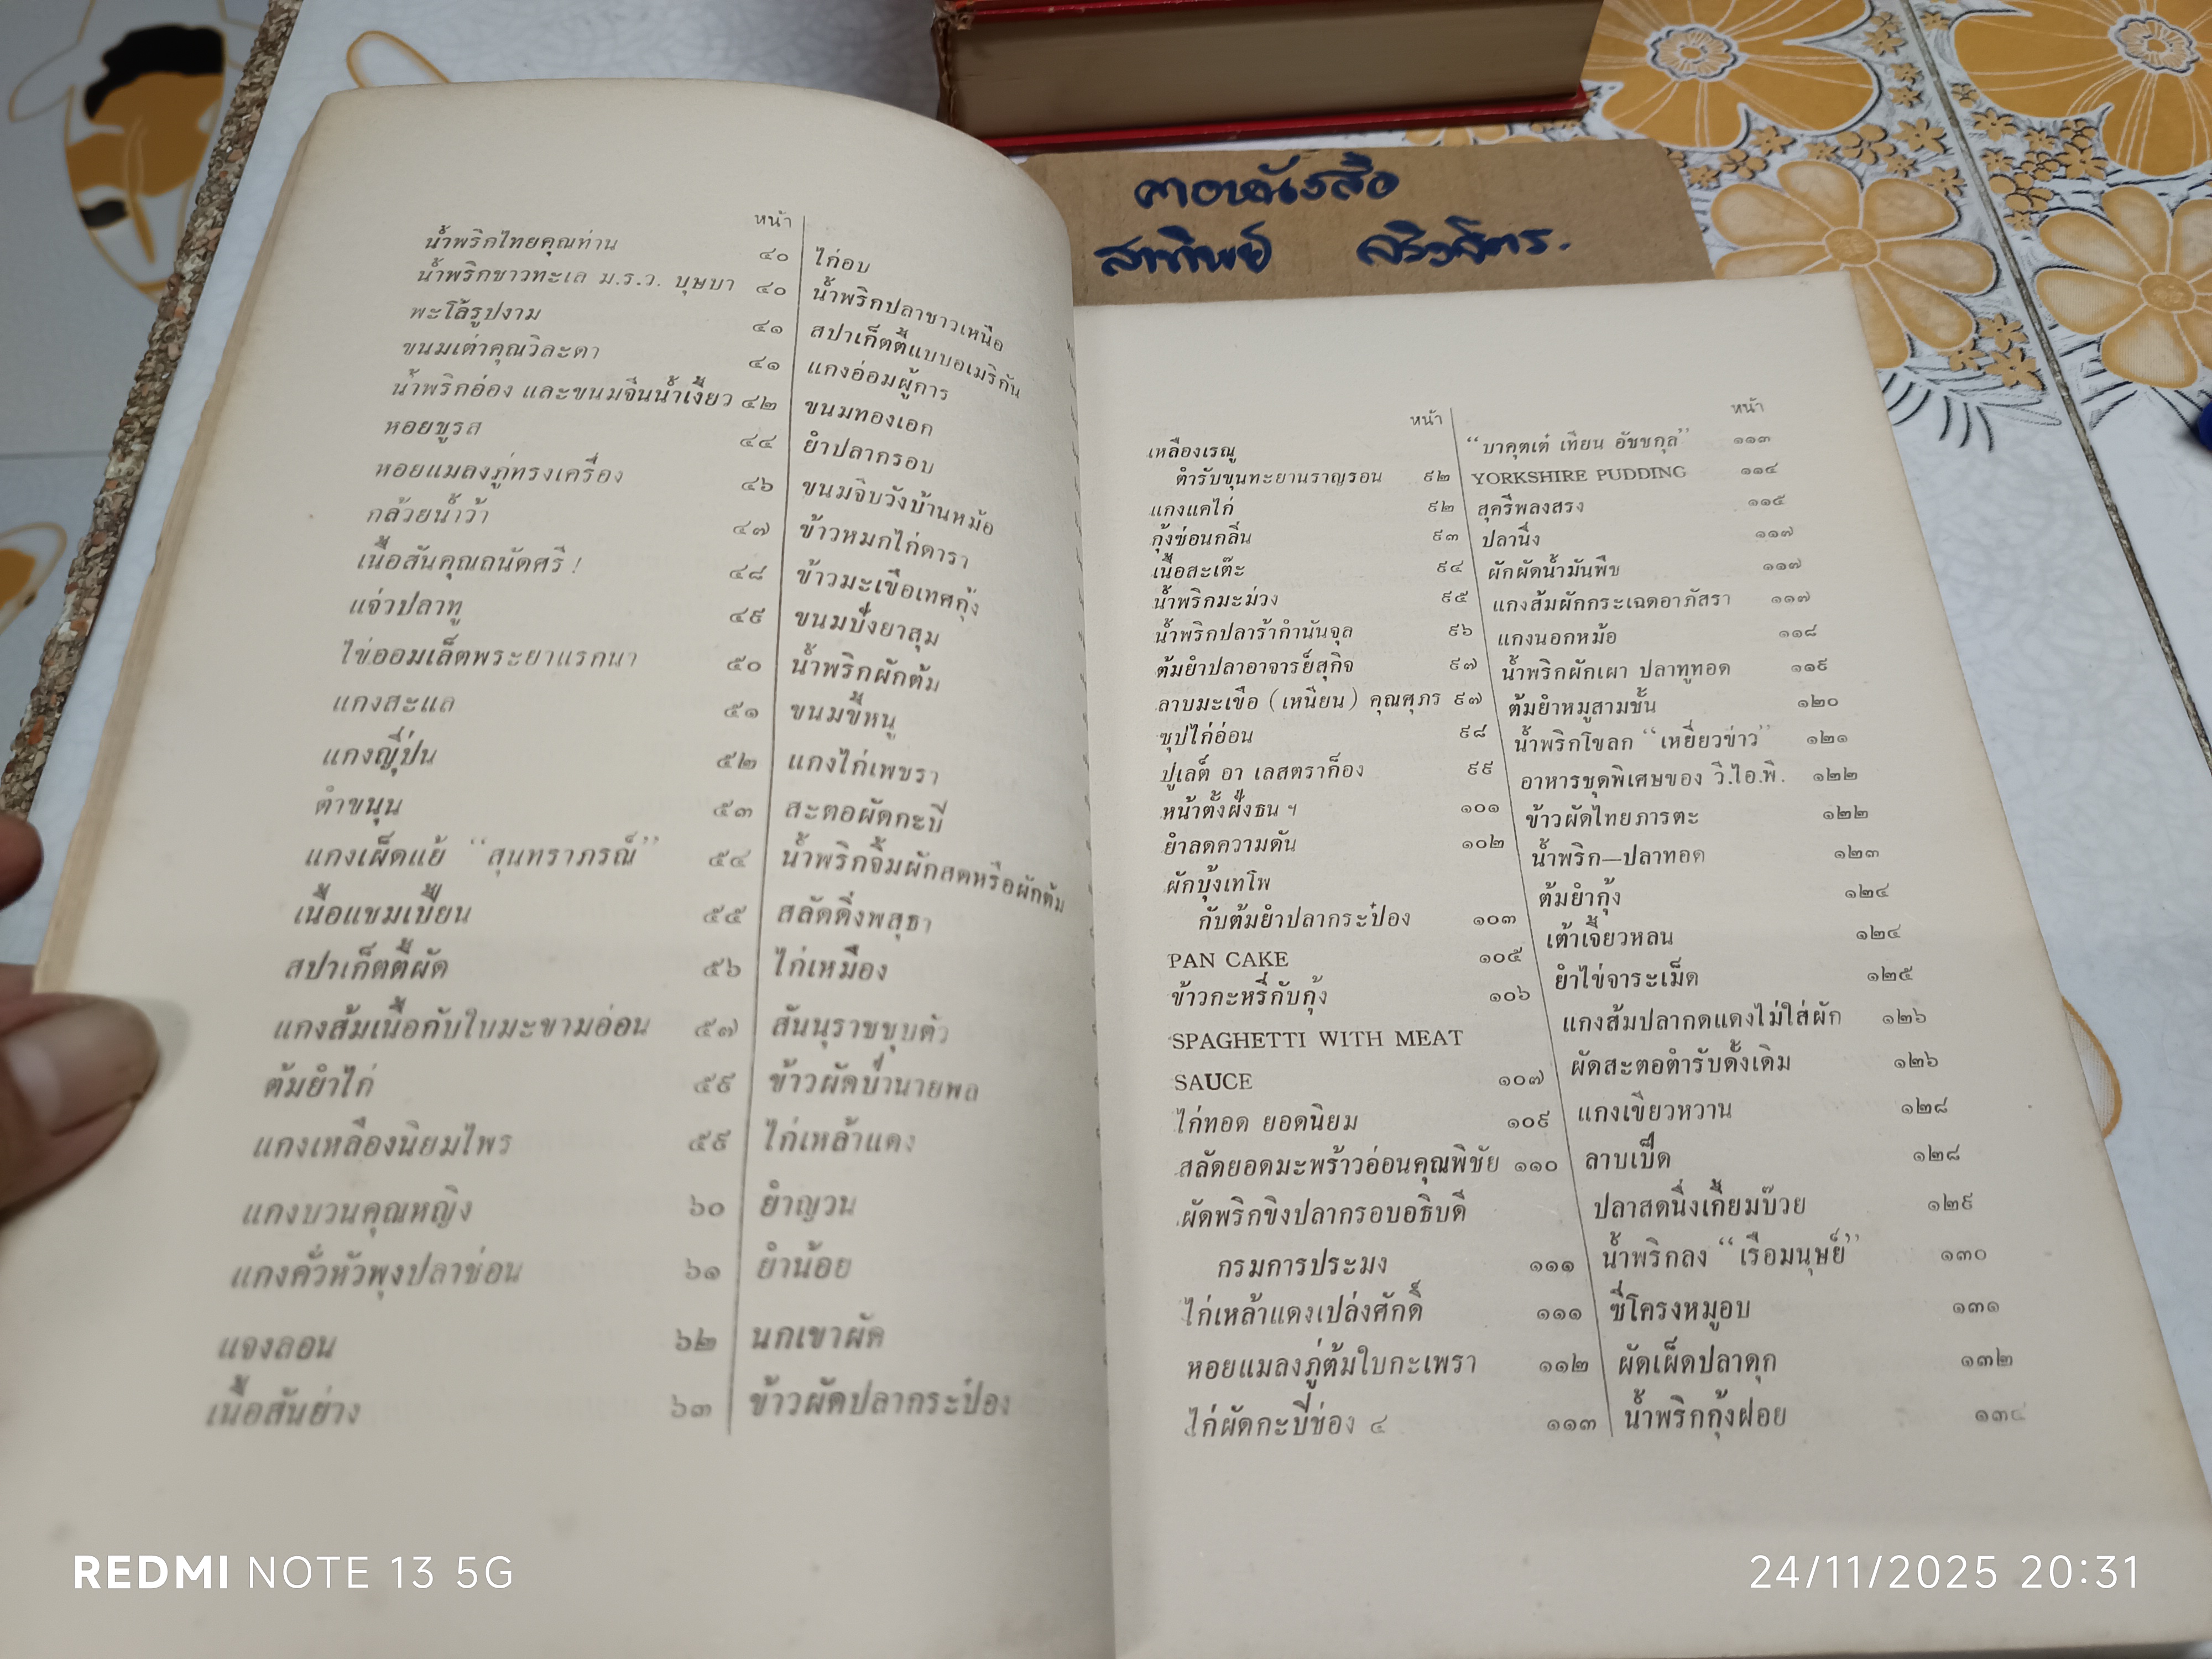 คาอหนังสือ
สาทิพย์ ศริวจิตร.
หน้า
น้ำพริกไทยคุณท่าน ๔๐
น้ำพริกขาวทะเล ม.ร.ว. บุษบา ๔๐
พะโล้รูปงาม ๔๑
ขนมเต่าคุณวิละดา ๔๑
น้ำพริกอ่อง และขนมจีนน้ำเงี้ยว ๔๒
หอยขูรส ๔๔
หอยแมลงภู่ทรงเครื่อง ๔๖
กล้วยน้ำว้า ๔๗
เนื้อสันคุณถนัดศรี ! ๔๘
แจ่วปลาทู ๔๙
ไข่ออมเล็ตพระยาแรกนา ๕๐
แกงสะแล ๕๑
แกงญี่ปุ่น ๕๒
ตำขนุน ๕๓
แกงเผ็ดแย้ “สุนทราภรณ์” ๕๔
เนื้อแขมเบี้ยน ๕๕
สปาเก็ตตี้ผัด ๕๖
แกงส้มเนื้อกับใบมะขามอ่อน ๕๗
ต้มยำไก่ ๕๙
แกงเหลืองนิยมไพร ๕๙
แกงบวนคุณหญิง ๖๐
แกงคั่วหัวพุงปลาช่อน ๖๑
แจงลอน ๖๒
เนื้อสันย่าง ๖๓
ไก่อบ
น้ำพริกปลาชาวเหนือ
สปาเก็ตตี้แบบอเมริกัน
แกงอ่อมผู้การ
ขนมทองเอก
ยำปลากรอบ
ขนมจีบวังบ้านหม้อ
ข้าวหมกไก่ดารา
ข้าวมะเขือเทศกุ้ง
ขนมปังยาสุม
น้ำพริกผักต้ม
ขนมขี้หนู
แกงไก่เพชรา
สะตอผัดกะปิ
น้ำพริกจิ้มผักสดหรือผักต้ม
สลัดดิ่งพสุธา
ไก่เหมือง
สันนุราชขุบตัว
ข้าวผัดป่านายพล
ไก่เหล้าแดง
ยำญวน
ยำน้อย
นกเขาผัด
ข้าวผัดปลากระป๋อง
หน้า
เหลืองเรณู
ตำรับขุนทะยานราญรอน ๙๒
แกงแคไก่ ๙๒
กุ้งซ่อนกลิ่น ๙๓
เนื้อสะเต๊ะ ๙๔
น้ำพริกมะม่วง ๙๕
น้ำพริกปลาร้ากำนันจุล ๙๖
ต้มยำปลาอาจารย์สุกิจ ๙๗
ลาบมะเขือ (เหนียน) คุณศุภร ๙๗
ซุปไก่อ่อน ๙๘
ปูเลต์ อา เลสตราก็อง ๙๙
หน้าตั้งฝั่งธน ฯ ๑๐๑
ยำลดความดัน ๑๐๒
ผักบุ้งเทโพ
กับต้มยำปลากระป๋อง ๑๐๓
PAN CAKE ๑๐๕
ข้าวกะหรี่กับกุ้ง ๑๐๖
SPAGHETTI WITH MEAT
SAUCE ๑๐๗
ไก่ทอด ยอดนิยม ๑๐๙
สลัดยอดมะพร้าวอ่อนคุณพิชัย ๑๑๐
ผัดพริกขิงปลากรอบอธิบดี
กรมการประมง ๑๑๑
ไก่เหล้าแดงเปล่งศักดิ์ ๑๑๑
หอยแมลงภู่ต้มใบกะเพรา ๑๑๒
ไก่ผัดกะปิช่อง ๔ ๑๑๓
หน้า
“บาคุตเต๋ เทียน อัชชกุล” ๑๑๓
YORKSHIRE PUDDING ๑๑๔
สุครีพลงสรง ๑๑๕
ปลานึ่ง ๑๑๗
ผักผัดน้ำมันพืช ๑๑๗
แกงส้มผักกระเฉดอาภัสรา ๑๑๗
แกงนอกหม้อ ๑๑๘
น้ำพริกผักเผา ปลาทูทอด ๑๑๙
ต้มยำหมูสามชั้น ๑๒๐
น้ำพริกโขลก “เหยี่ยวข่าว” ๑๒๑
อาหารชุดพิเศษของ วี.ไอ.พี. ๑๒๒
ข้าวผัดไทยภารตะ ๑๒๒
น้ำพริก—ปลาทอด ๑๒๓
ต้มยำกุ้ง ๑๒๔
เต้าเจี้ยวหลน ๑๒๔
ยำไข่จาระเม็ด ๑๒๕
แกงส้มปลากดแดงไม่ใส่ผัก ๑๒๖
ผัดสะตอตำรับดั้งเดิม ๑๒๖
แกงเขียวหวาน ๑๒๘
ลาบเป็ด ๑๒๘
ปลาสดนึ่งเกี้ยมบ๊วย ๑๒๙
น้ำพริกลง “เรือมนุษย์” ๑๓๐
ซี่โครงหมูอบ ๑๓๑
ผัดเผ็ดปลาดุก ๑๓๒
น้ำพริกกุ้งฝอย ๑๓๔
REDMI NOTE 13 5G
24/11/2025 20:31